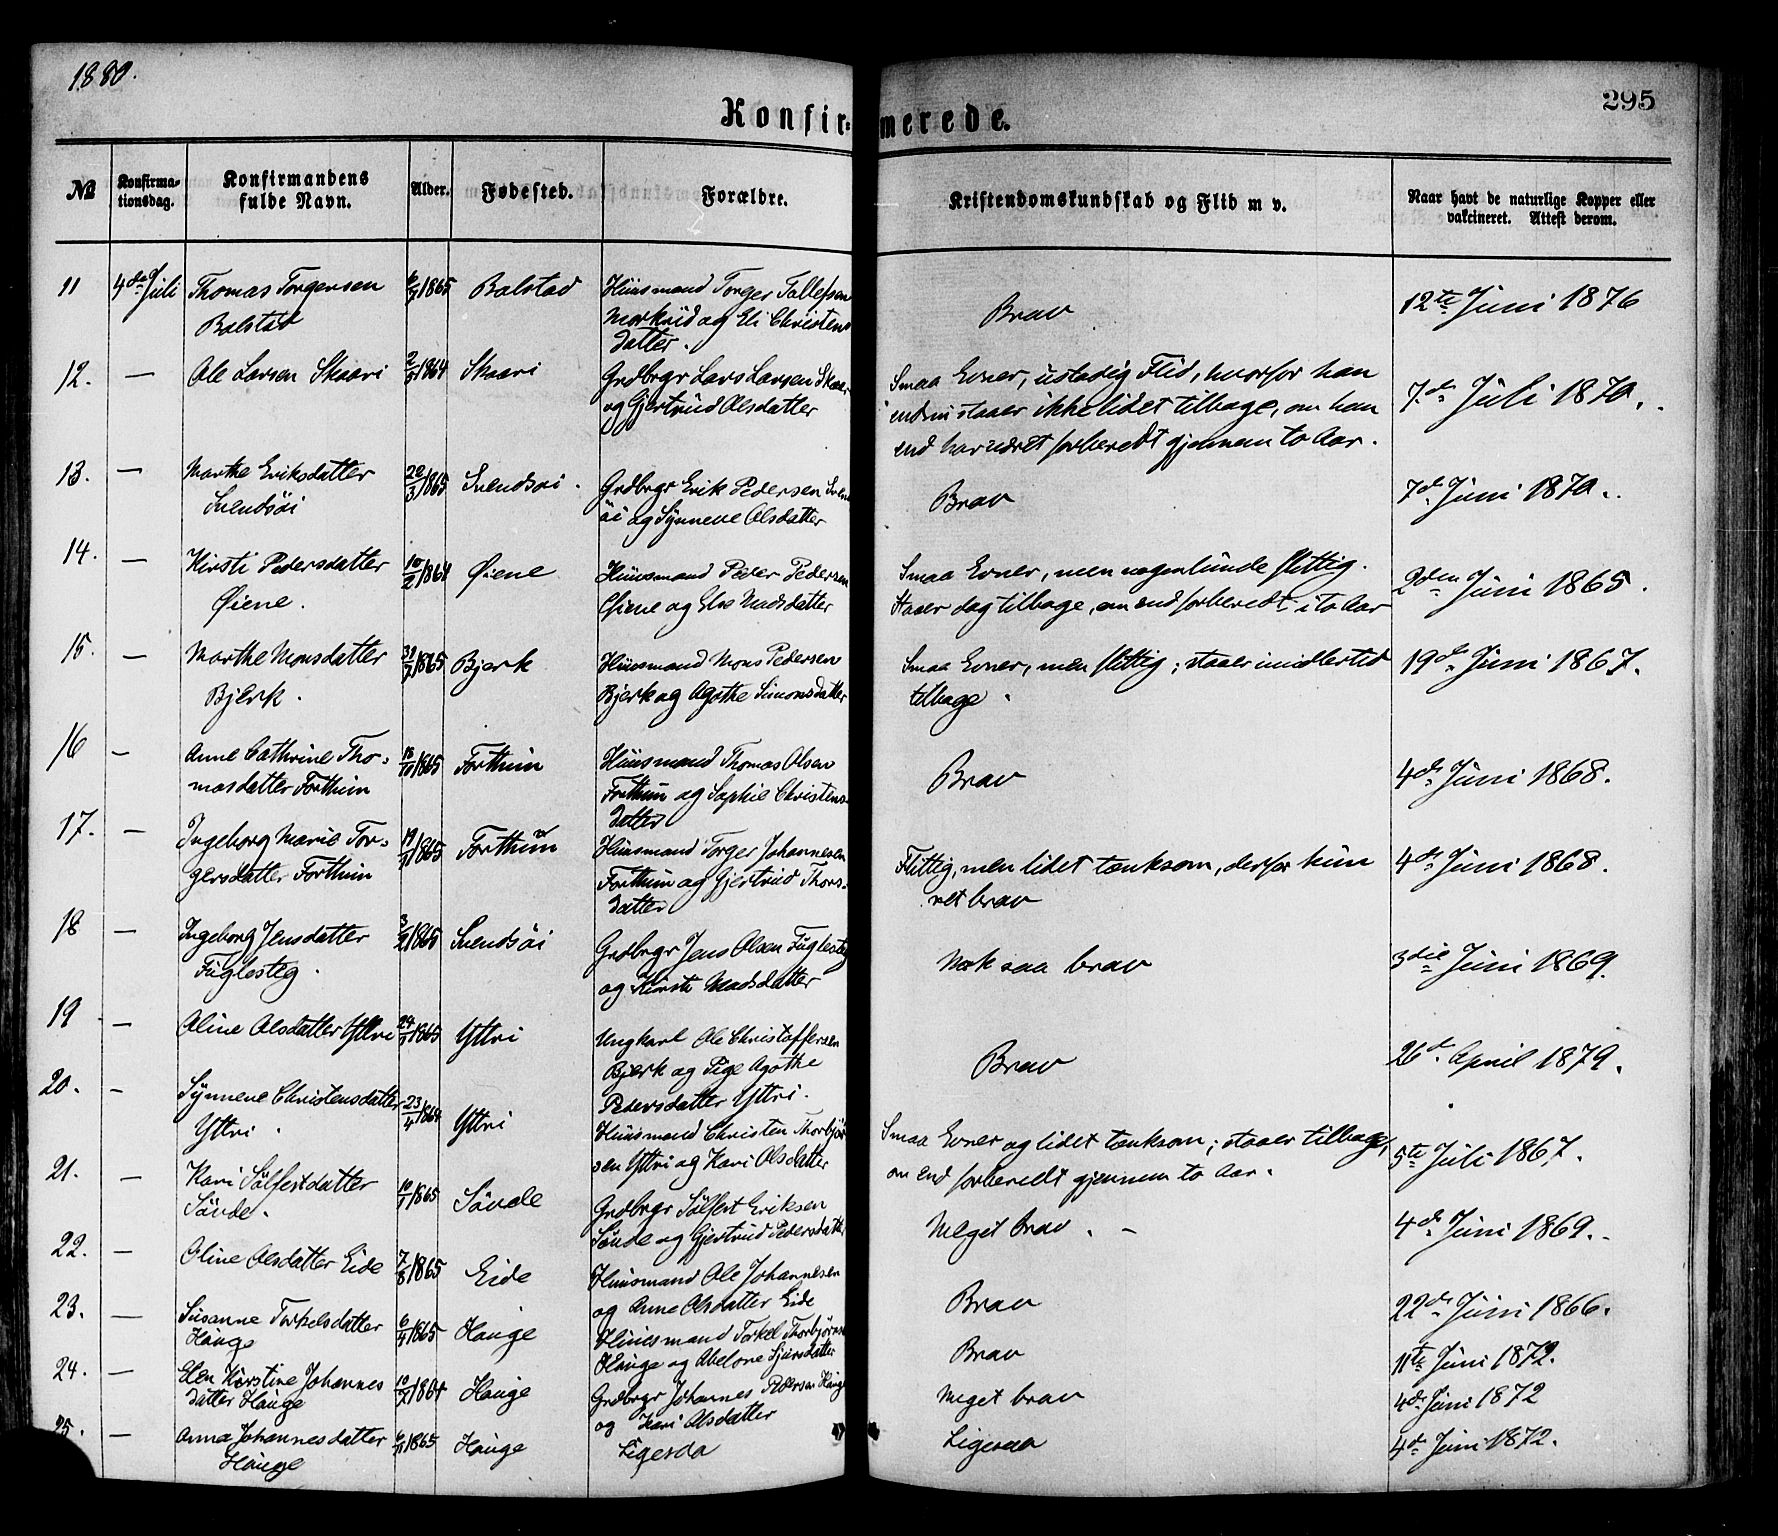 1880.
295
Konfirmerede.
№ Konfirmationsdag. Konfirmandens fulde Navn. Alder. Fødested. Forældre. Kristendomskundskab og Flid m v. Naar havt de naturlige Kopper eller vakcineret. Attest derom.
11 4de Juli Thomas Torgersen 6/9 1865 Balstad Huusmand Torger Tollefsen Brav 12te Juni 1876
Balstad Morkrid og Eli Christens
datter.
12. — Ole Larsen Skaari 2/3 1864 Skaari Grdbrgr Lars Larsen Skaar Smaa Evner, ustadig Flid, hvorfor han 7de Juli 1870.
i og Gjertrud Olsdatter endnu staaer ikke lidet tilbage, om han
end har været forberedt gjennem to Aar.
13. — Marthe Eriksdatter 22/3 1865 Svendsøi. Grdbrgr Erik Pedersen Svens Brav 7de Juni 1870.
Svendsøi øi og Synneve Olsdatter
14. — Kirsti Pedersdatter 10/2 1864 Øiene Huusmand Peder Pedersen Smaa Evner, men nogenlunde flittig. 2den Juni 1865.
Øiene. Øiene og Madsdatter Staaer dog tilbage, om end forberedt i to Aar
15. — Marthe Monsdatter 1865 Bjerk Huusmand Mons Pedersen Smaa Evner, men flittig; staaer imidlertid 19de Juni 1867.
Bjerk. Bjerk og Agathe Simonsdatter tilbage.
16 — Anne Cathrine Tho- 18/10 1865 Forthun Huusmand Thomas Olsen Brav 4de Juni 1868.
masdatter Forthun Forthun og Sophie Christens-
datter
17. — Ingeborg Marie Tor- 1865 Forthun Huusmand Torger Johannesen Flittig, men lidet tænksom, derfor kun 4de Juni 1868.
gersdatter Forthun Forthun og Gjertrud Thors- ret brav
datter
18 — Ingeborg Jensdatter 3/2 1865 Svendsøi Grdbrgr Jens Olsen Fuglesteg Nok saa brav 3die Juni 1869.
Fuglesteg. og Kirsti Madsdatter
19 — Oline Olsdatter Yttri 1865 Yttri Ungkarl Ole Christoffersen Brav 26de April 1879.
Bjerk og Pige Agathe
Pedersdatter Yttri.
20. — Synneve Christensdatter 23/4 1864 Yttri Huusmand Christen Thorbjør Smaa Evner og lidet tænksom; staaer tilbage, 5te Juli 1867.
Yttri. sen Yttri og Kari Olsdatter om end forberedt gjennem to Aar.
21. — Kari Sølfestdatter 1865 Søvde Grdbrgr Sølfest Eriksen Meget brav. — 4de Juni 1869.
Søvde. Søvde og Gjertrud Pedersdatter
22. — Oline Olsdatter Eide 7/8 1865 Eide Huusmand Ole Johannesen Brav 22de Juni 1866.
og Anna Olsdatter Eide
23. — Susanne Torkelsdatter 6/4 1865 Hauge Huusmand Torkel Thorbjørns Brav 11te Juni 1872.
Hauge Hauge og Abelone Sjursdatter
24. — Elen Kirstine Johannes 1864 Hauge Grdbrgr Johannes Pedersen Hauge Meget brav 4de Juni 1872
datter Hauge og Kari Olsdatter
25. — Anna Johannesdatter 1865 Hauge Ligesaa Ligesaa 4de Juni 1872.
Hauge